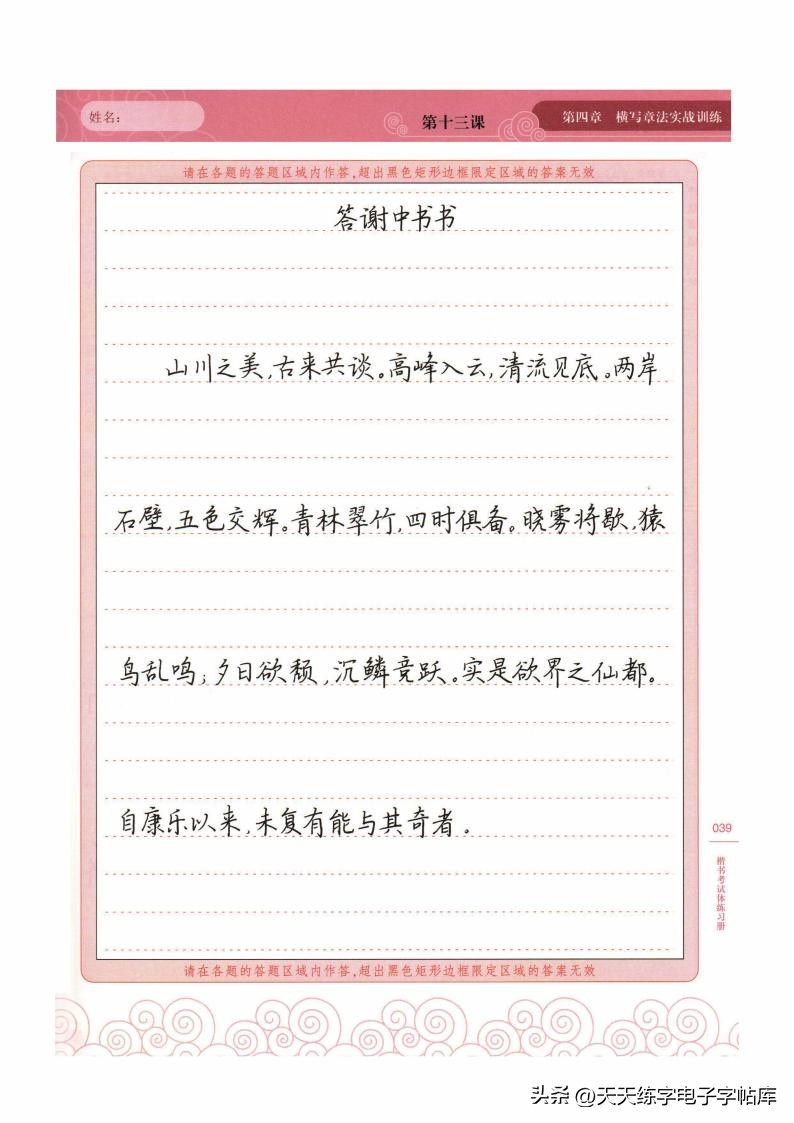 姓名：
第十三课
第四章 横写章法实战训练
请在各题的答题区域内作答，超出黑色矩形边框限定区域的答案无效
答谢中书书
山川之美，古来共谈。高峰入云，清流见底。两岸
石壁，五色交辉。青林翠竹，四时俱备。晓雾将歇，猿
鸟乱鸣；夕日欲颓，沉鳞竞跃。实是欲界之仙都。
自康乐以来，未复有能与其奇者。
039
楷书考试体练习册
请在各题的答题区域内作答，超出黑色矩形边框限定区域的答案无效
头条 @天天练字电子字帖库